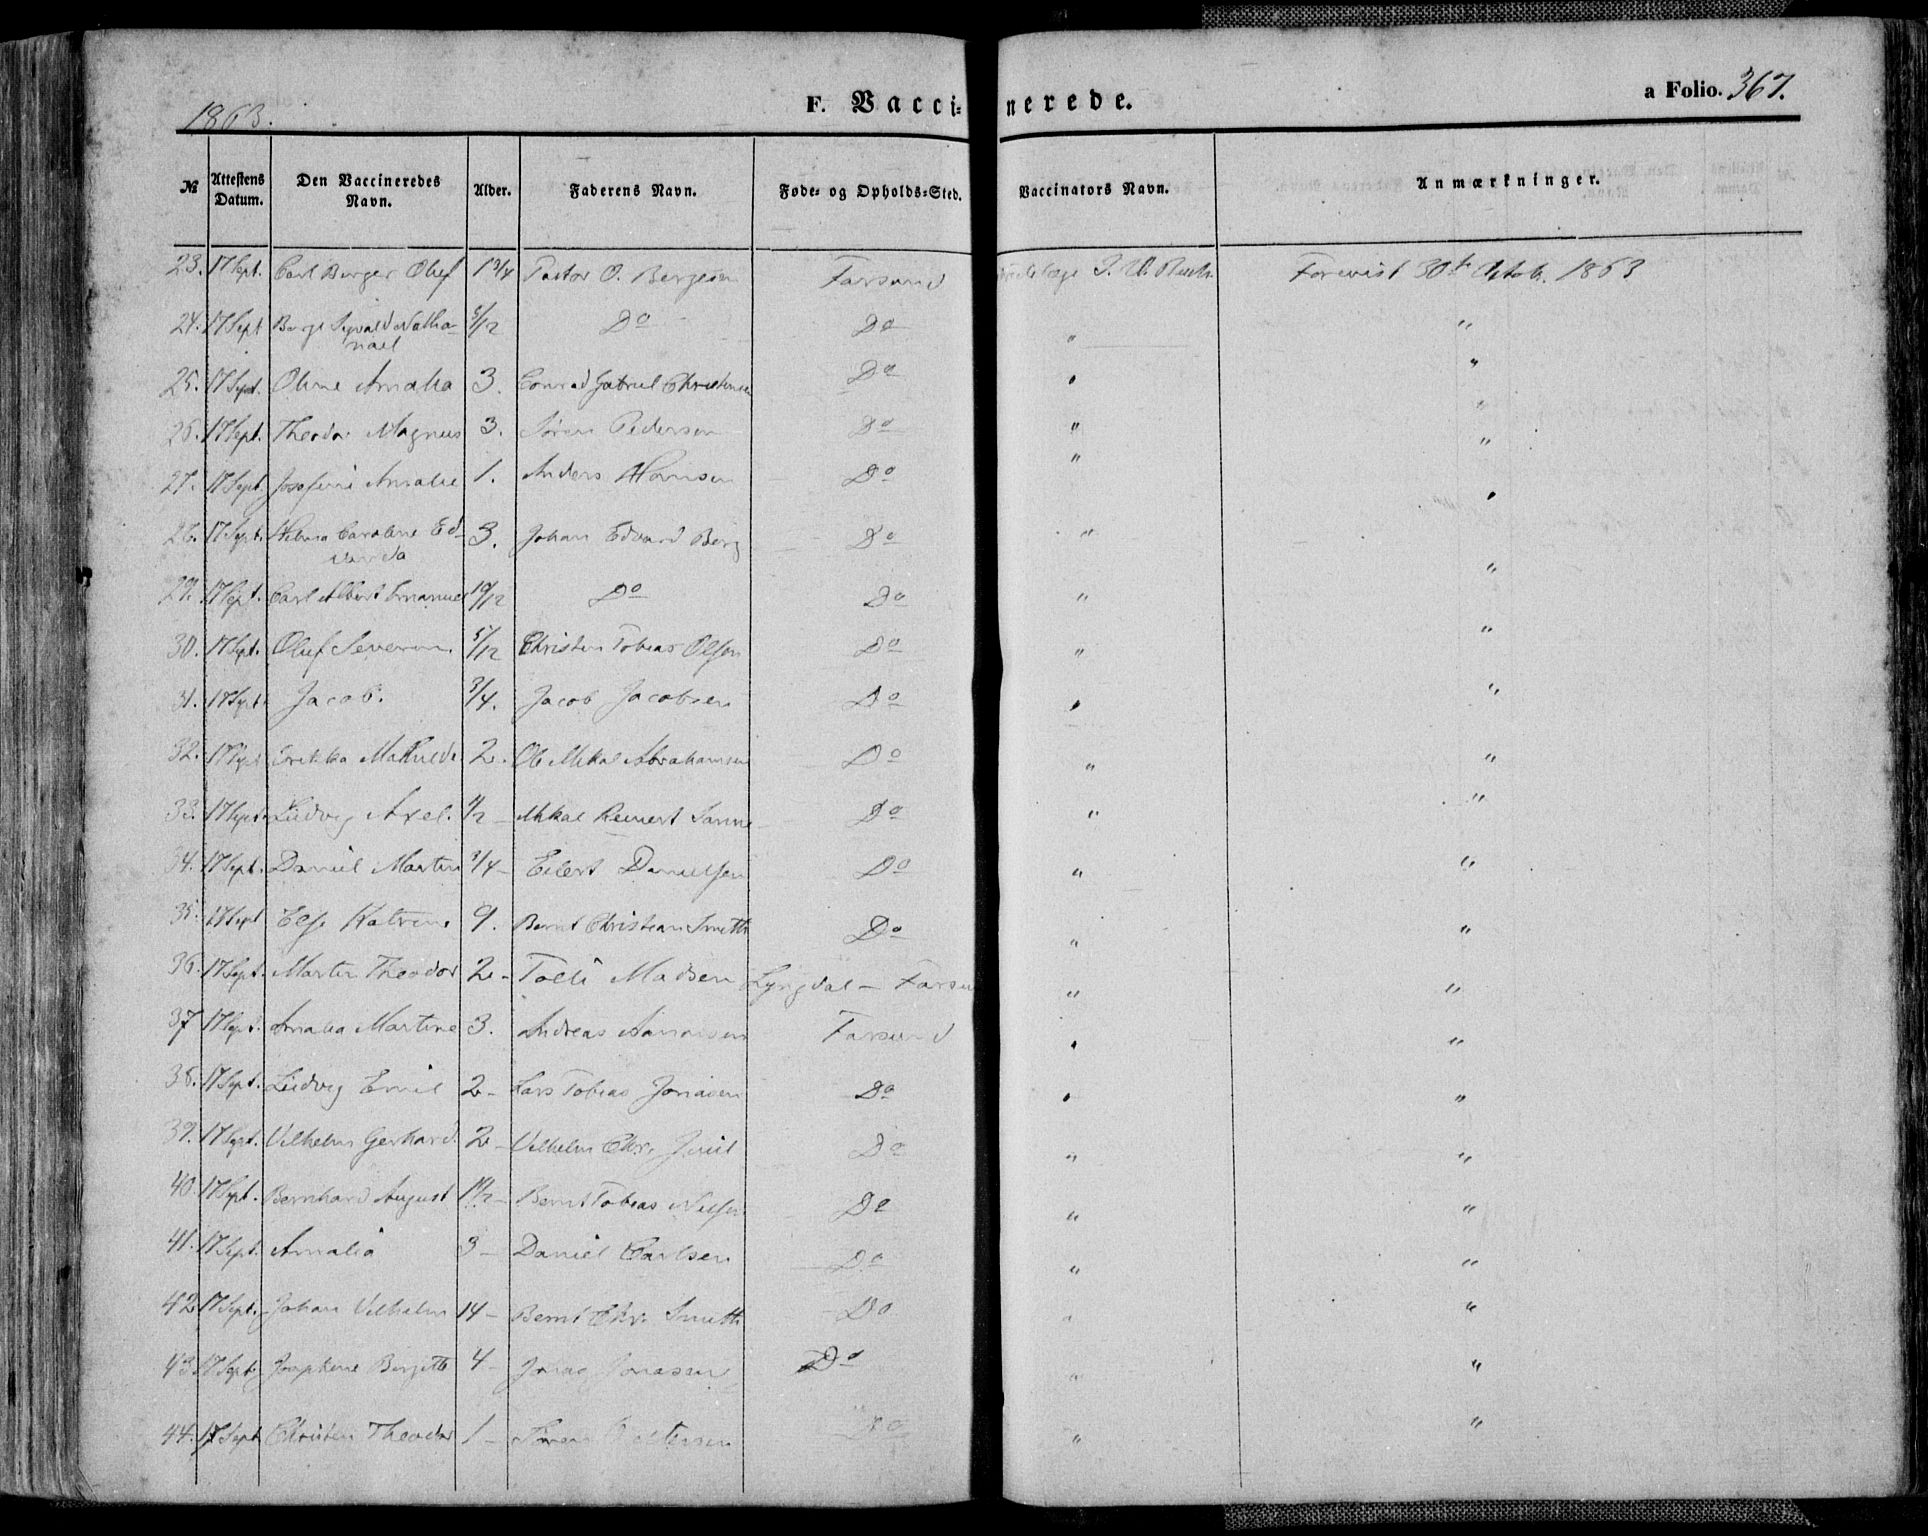 1863.
F. Vaccinerede.
a Folio. 367.
№ | Attestens Datum. | Den Vaccineredes Navn. | Alder. | Faderens Navn. | Føde- og Opholds-Sted. | Vaccinators Navn. | Anmærkninger.
23. 17 Sept. Carl Berger Oluf 1 3/4 Pastor O. Bergesen Farsund Foreviist 30te Octob. 1863
24. 17 Sept Berge Sigvald Natha-
nael 5/12 Do Do " "
25. 17 Sept. Oline Amalia 3. Conrad Gabriel Christensen Do " "
26. 17 Sept. Theodor Magnus 3. Søren Pedersen Do " "
27. 17 Sept. Josefine Amalie 1. Anders Hansen Do " "
28. 17 Sept. Caroline Ed-
varda 3. Johan Edvard Berg Do " "
29. 17 Sept. Carl Albert Emanuel 10/12 Do Do " "
30. 17 Sept. Oluf Severin 5/12 Christen Tobias Olsen Do " "
31. 17 Sept Jacob. 3/4. Jacob Jacobsen Do " "
32. 17 Sept Erikka Mathilde 2. Ole Mikal Abrahamsen Do " "
33. 17 Sept Ludvig Axel. 1/2 Mikal Reinert Do " "
34. 17 Sept. Daniel Martin 3/4 Eilert Danielsen Do " "
35. 17 Sept Else Katrine 9. Bernt Christian Smith Do " "
36. 17 Sept. Martin Theodor 2 - Tolli Madsen Lyngdal - Farsund " "
37 17 Sept. Amalia Martine 3. Andreas Aanensen Farsund " "
38. 17 Sept. Ludvig Emil 2 - Lars Tobias Jonasen Do " "
39. 17 Sept. Vilhelm Gerhard. 2 - Vilhelm Chr. Juul Do " "
40. 17 Sept. Bernhard August 1 1/2 - Bernt Tobias Nilsen Do " "
41. 17 Sept. Amalia 3 - Daniel Carlsen Do " "
42 17 Sept. Johan Vilhelm 14 - Bernt Chr. Smith Do " "
43 17 Sept. Josephine Birgitte 4 - Jonas Jonassen Do " "
44. 17 Sept Christen Theodor 1 - Do " "